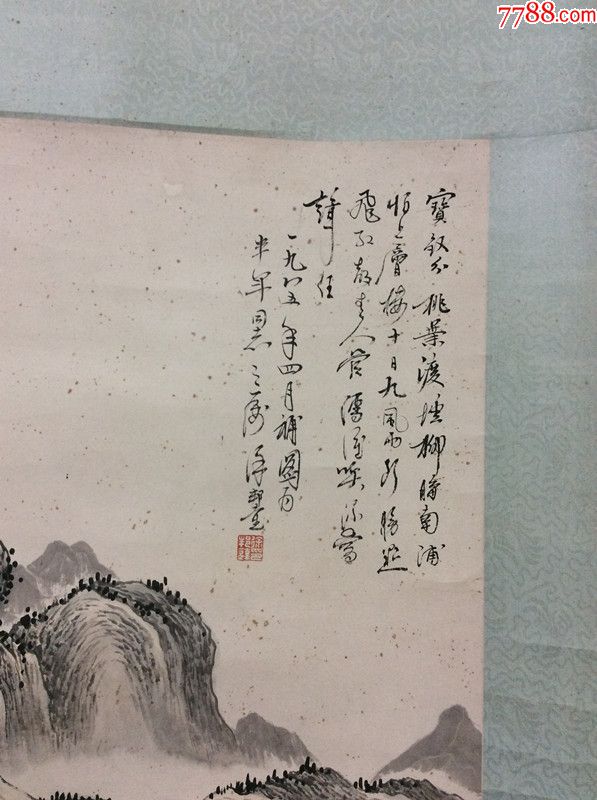 7788.com
寶釵分桃葉渡煙柳暗南浦
怕上層樓十日九風雨斷腸點
飛紅都無人管倩誰喚流鶯
聲住
一九八五年四月補圖為
半年同志之屬